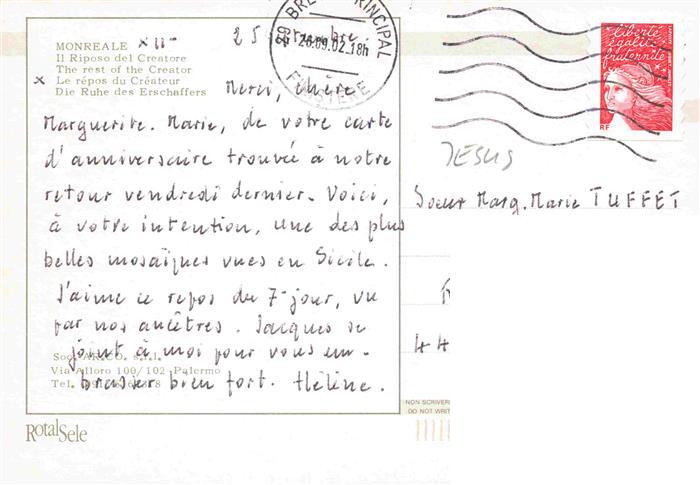 MONREALE x II
Il Riposo del Creatore
The rest of the Creator
x Le répos du Créateur
Die Ruhe des Erschaffers
25 septembre.
29 BREST PRINCIPAL
26.09.02 18h
FINISTERE
Liberté
égalité
fraternité
RF
Merci, chère
Marguerite. Marie, de votre carte
d'anniversaire trouvée à notre
retour vendredi dernier. Voici,
à votre intention, une des plus
belles mosaïques vues en Sicile.
J'aime ce repos du 7e jour, vu
par nos ancêtres. Jacques se
joint à moi pour vous em-
brasser bien fort. Hélène.
JESUS
Soeur Marg. Marie TUFFET
44
Via Alloro 100/102 Palermo
Tel.
NON SCRIVERE
DO NOT WRIT
RotalSele